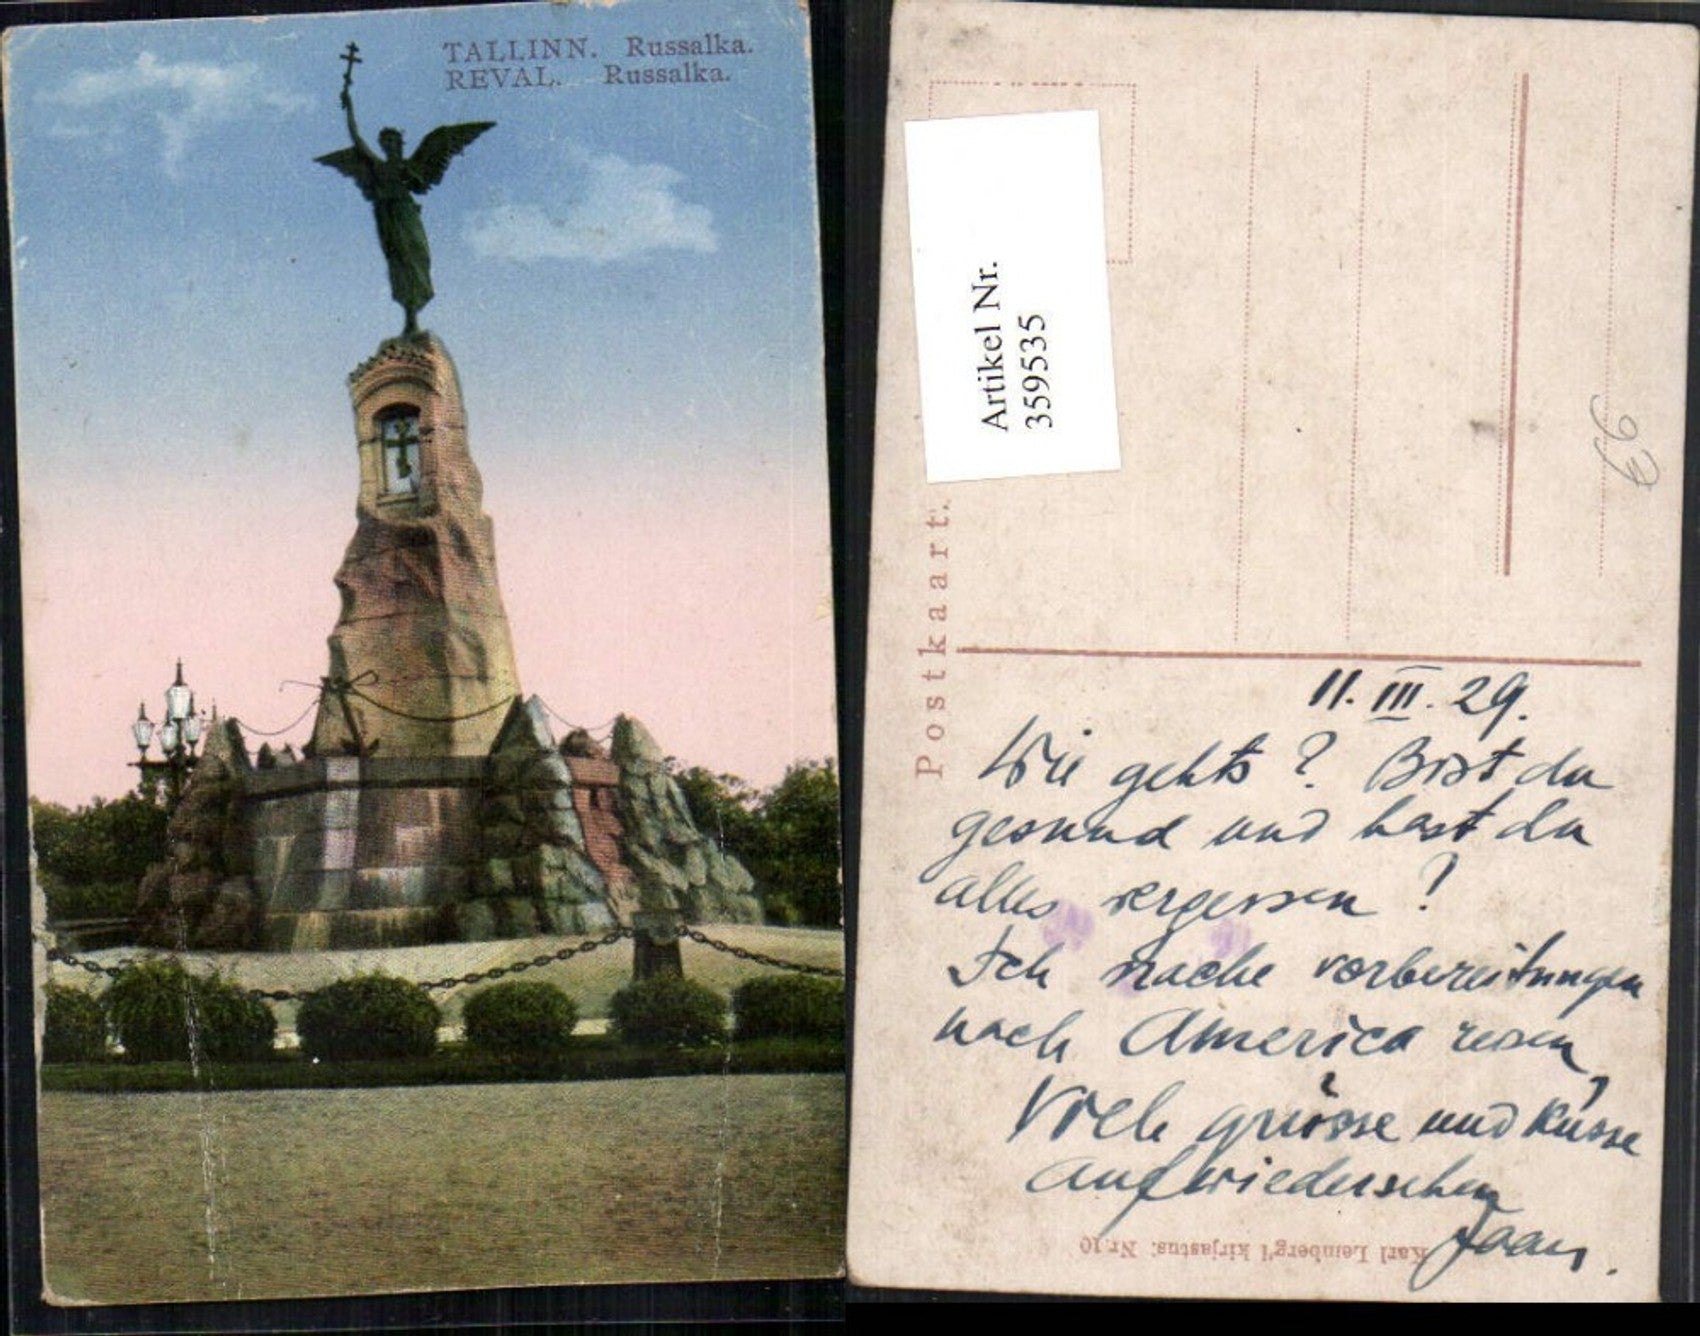 TALLINN. Russalka.
REVAL. Russalka.
Artikel Nr.
359535
Postkaart.
11. III. 29.
Wie gehts? Bist du
gesund und hast du
alles vergessen?
Ich mache vorbereitungen
nach America reisen,
Viele grüsse und Küsse
auf wiedersehen
Jaan.
Karl Leinberg'i kirjastus. Nr. 10